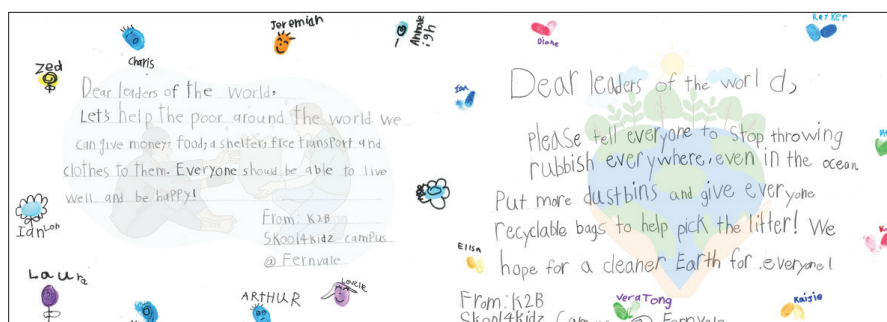 Jeremiah
Zed
Charis
Dear leaders of the world,
Let's help the poor around the world we
can give money, food, a shelter, free transport and
clothes to them. Everyone should be able to live
well and be happy!
From: K2B
Skool4kidz campus
@ Fernvale
Ian Loh
Laura
ARTHUR
Diane
Ian
Dear leaders of the world,
Please tell everyone to stop throwing
rubbish everywhere, even in the ocean.
Put more dustbins and give everyone
recyclable bags to help pick the litter! We
hope for a cleaner Earth for everyone!
From: K2B
Skool4kidz Campus @ Fernvale
Elisa
Vera Tong
Kaijie